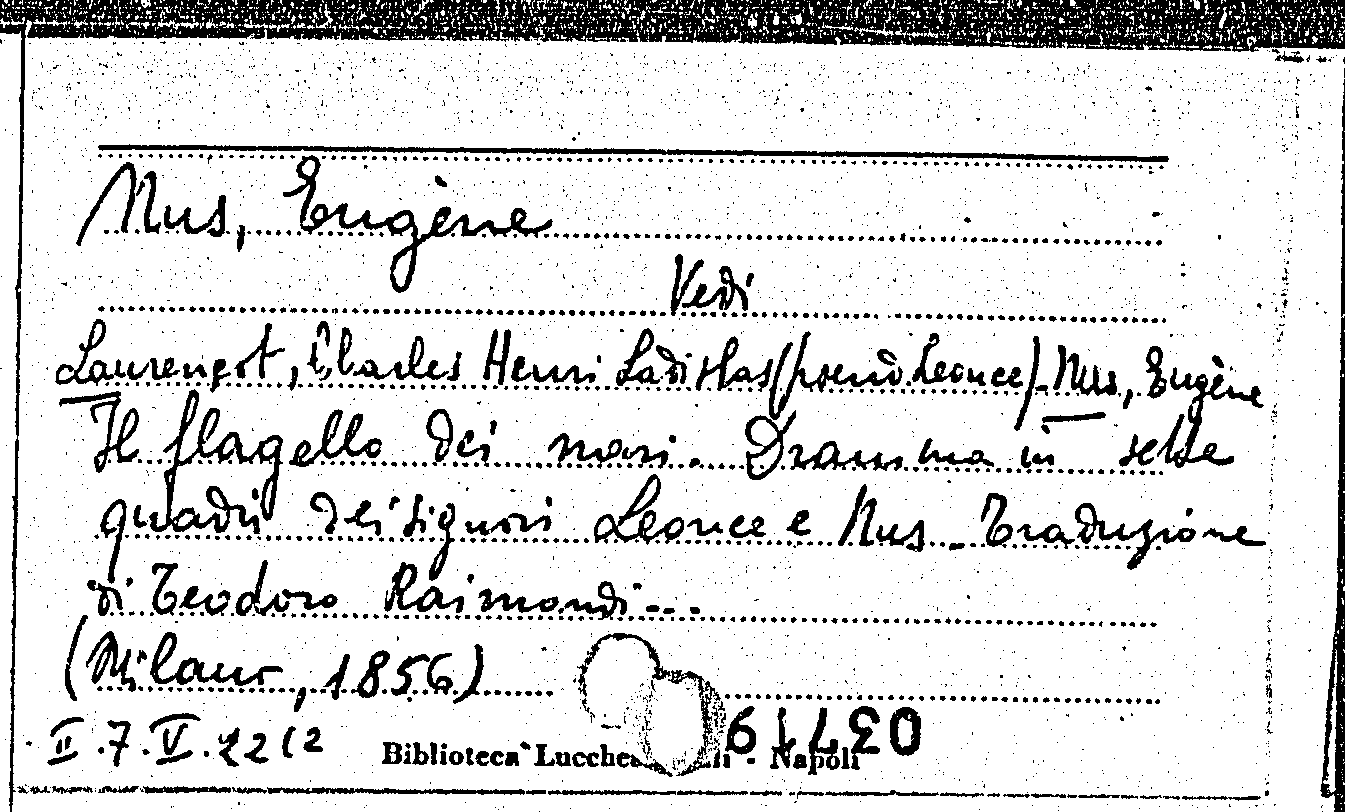 Nus, Eugène
Vedi
Laurençot, Charles Henri Ladislas (pseud Leonce) - Nus, Eugène
Il flagello dei mari. Dramma in sette
quadri dei signori Leonce e Nus - Traduzione
di Teodoro Raimondi...
(Milano, 1856)
II.7.V.22(2
Biblioteca Lucchesi - Napoli
03719